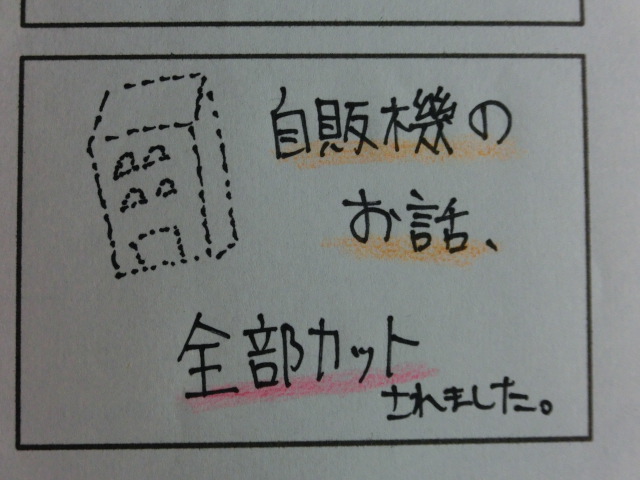 自販機の
お話、
全部カット
されました。